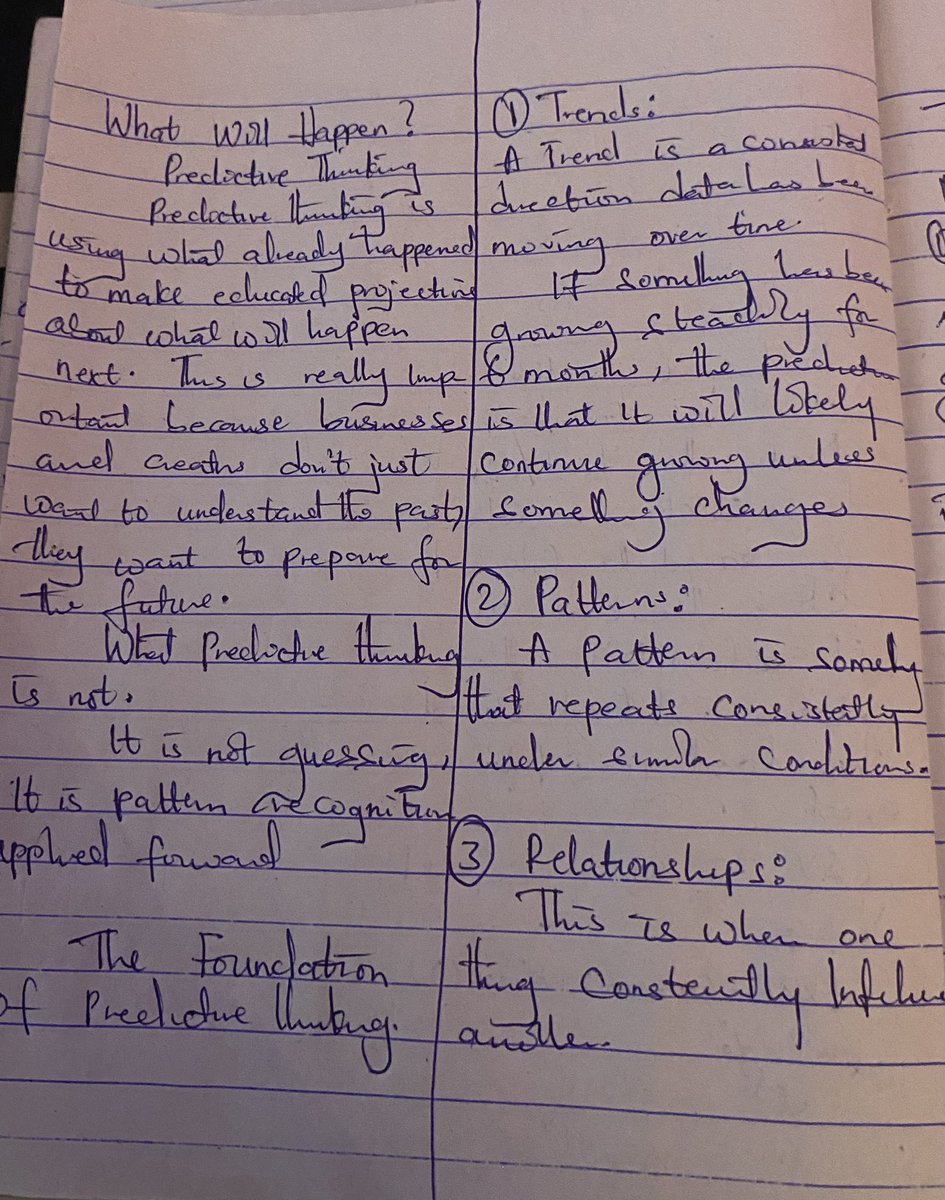 What will Happen?
Predictive Thinking
Predictive thinking is
using what already happened
to make educated projections
about what will happen
next. This is really imp
ortant because businesses
and creatives don't just
want to understand the past,
they want to prepare for
the future.
What Predictive thinking
is not.
It is not guessing,
It is pattern recognition
applied forward
The Foundation
of Predictive thinking.
① Trends:
A Trend is a consistent
direction data has been
moving over time.
If something has been
growing steadily for
6 months, the prediction
is that it will likely
continue growing unless
something changes
② Patterns:
A pattern is something
that repeats consistently
under similar conditions.
③ Relationships:
This is when one
thing consistently
another.